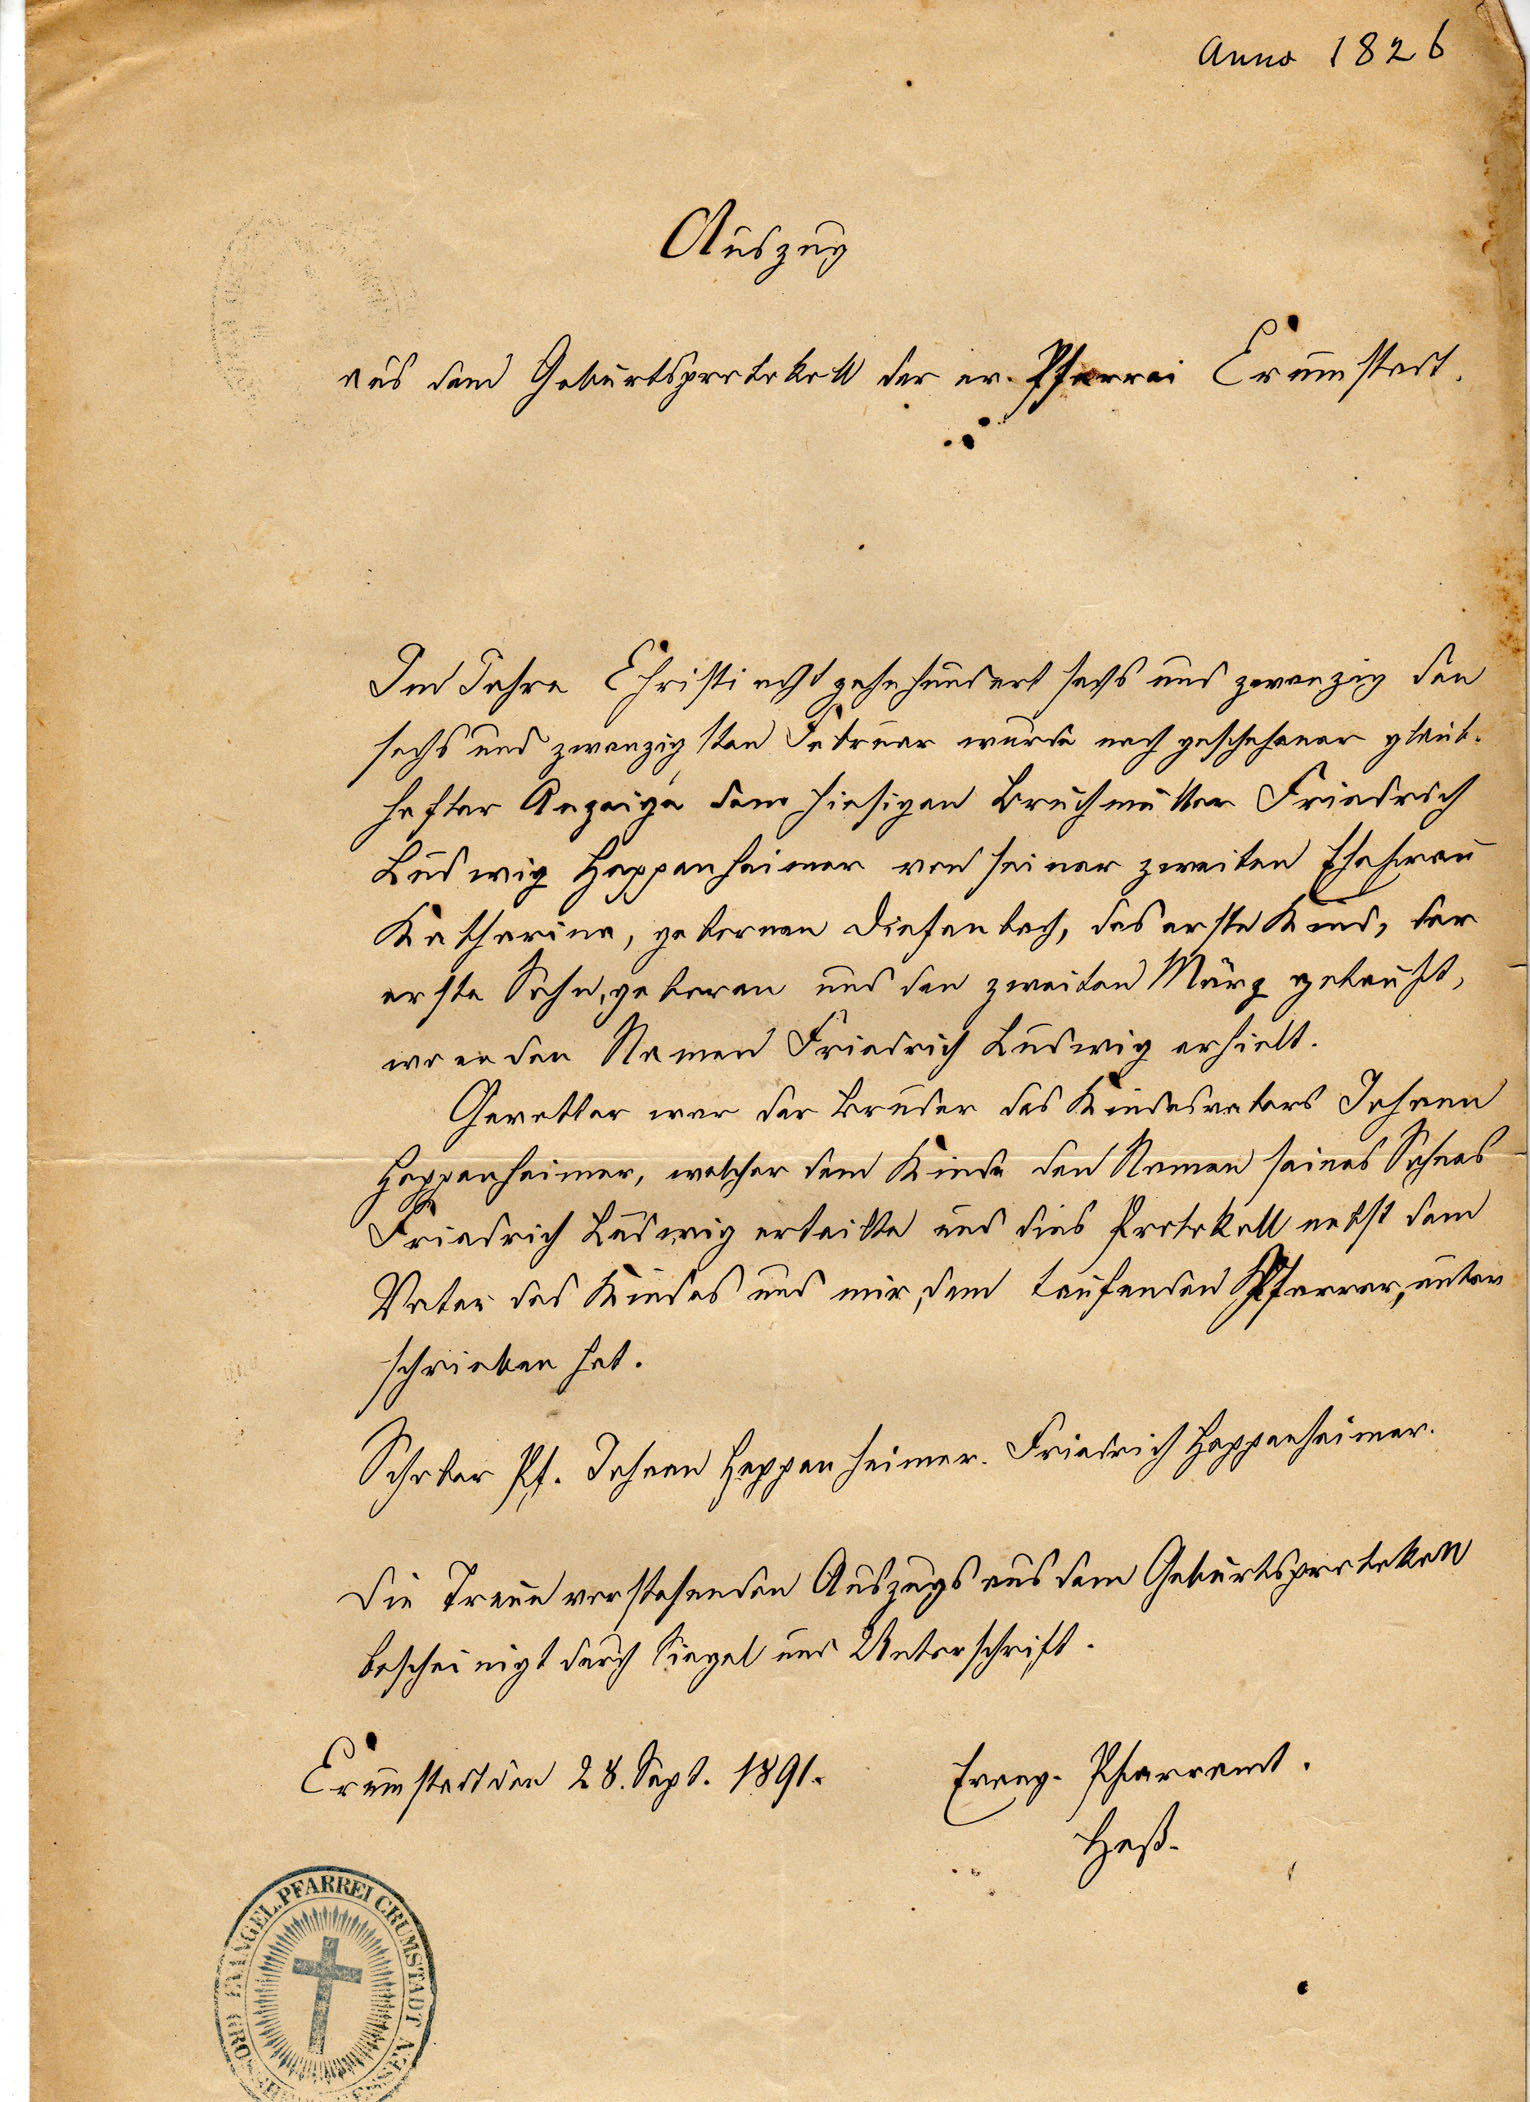 Anno 1826
Auszug
aus dem Geburtsprotokoll der ev. Pfarrei Crumstadt.
Im Jahre Christi achtzehnhundert sechs und zwanzig den
sechs und zwanzigsten Februar wurde nach geschehener glaub-
hafter Anzeige dem hiesigen Bruchmüller Friedrich
Ludwig Heppenheimer von seiner zweiten Ehefrau
Katharina, gebornen Diefenbach, das erste Kind, der
erste Sohn, geboren und den zweiten März getauft,
wo er den Namen Friedrich Ludwig erhielt.
Gevatter war der Bruder des Kindesvaters Johann
Heppenheimer, welcher dem Kinde den Namen seines Sohnes
Friedrich Ludwig erteilte und dies Protokoll nebst dem
Vater des Kindes und mir, dem taufenden Pfarrer, unter
schrieben hat.
Schober Pf. Johann Heppenheimer. Friedrich Heppenheimer.
Die Treue vorstehenden Auszugs aus dem Geburtsprotokoll
bescheinigt durch Siegel und Unterschrift.
Crumstadt den 28. Sept. 1891. Evang. Pfarramt.
Heß.
EVANGEL. PFARREI CRUMSTADT